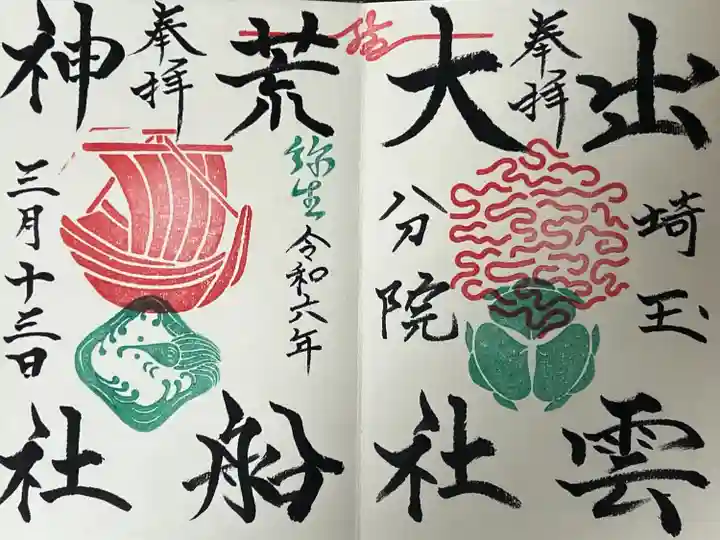 出雲
埼玉
奉拝
大社
分院
荒船
弥生
令和六年
奉拝
神社
三月十三日